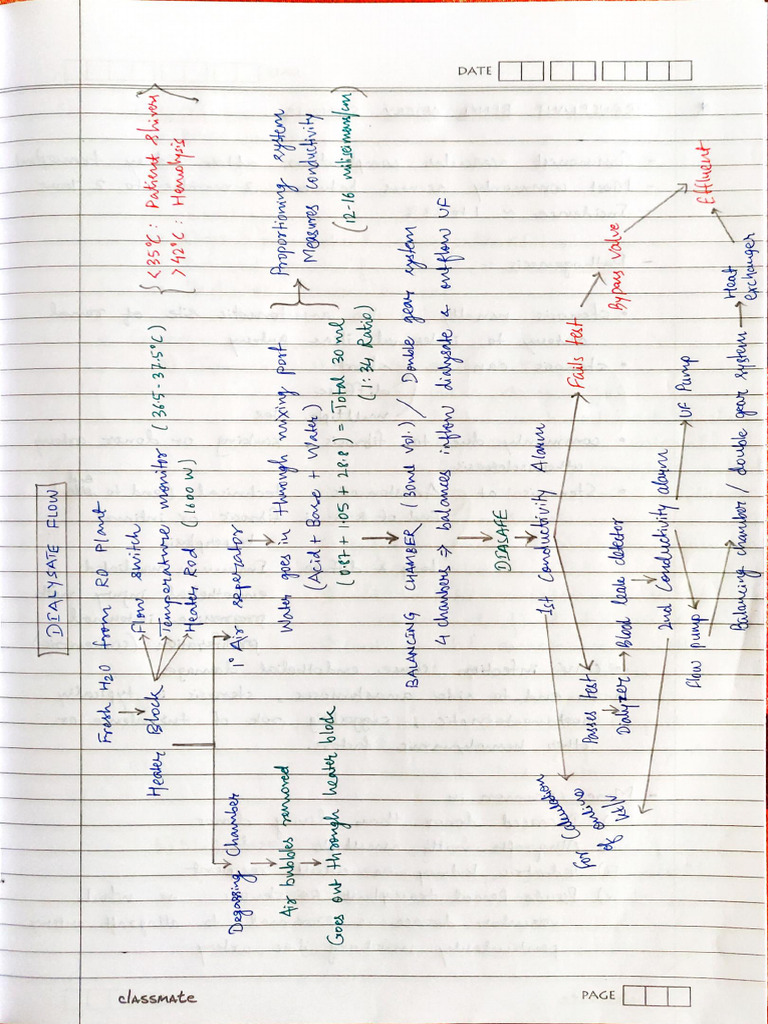 DATE
DIALYSATE FLOW
Fresh H2O from RO Plant
Heater Block
Flow switch
Temperature monitor (36.5-37.5°C)
Heater Rod (1600W)
<35°C: Patient Shivers
>42°C: Hemolysis
Degassing Chamber
Air bubbles removed
Goes out through heater block
1° Air seperator
Water goes in through mixing port
(Acid + Base + Water)
(0.87 + 1.05 + 28.8) = Total 30 ml
(1:34 Ratio)
Proportioning system
Measures conductivity
(12-16 milisiemans/cm)
BALANCING CHAMBER - (30ml vol.) / Double gear system
4 chambers => balances inflow dialysate & outflow UF
DIASAFE
1st Conductivity Alarm
Fails test
Bypass valve
Effluent
Passes test
Dialyzer → Blood leak detector
2nd Conductivity alarm
For Calculation
of online
Kt/V
Flow pump
UF Pump
Balancing chamber / double gear system → Heat
exchanger
classmate
PAGE